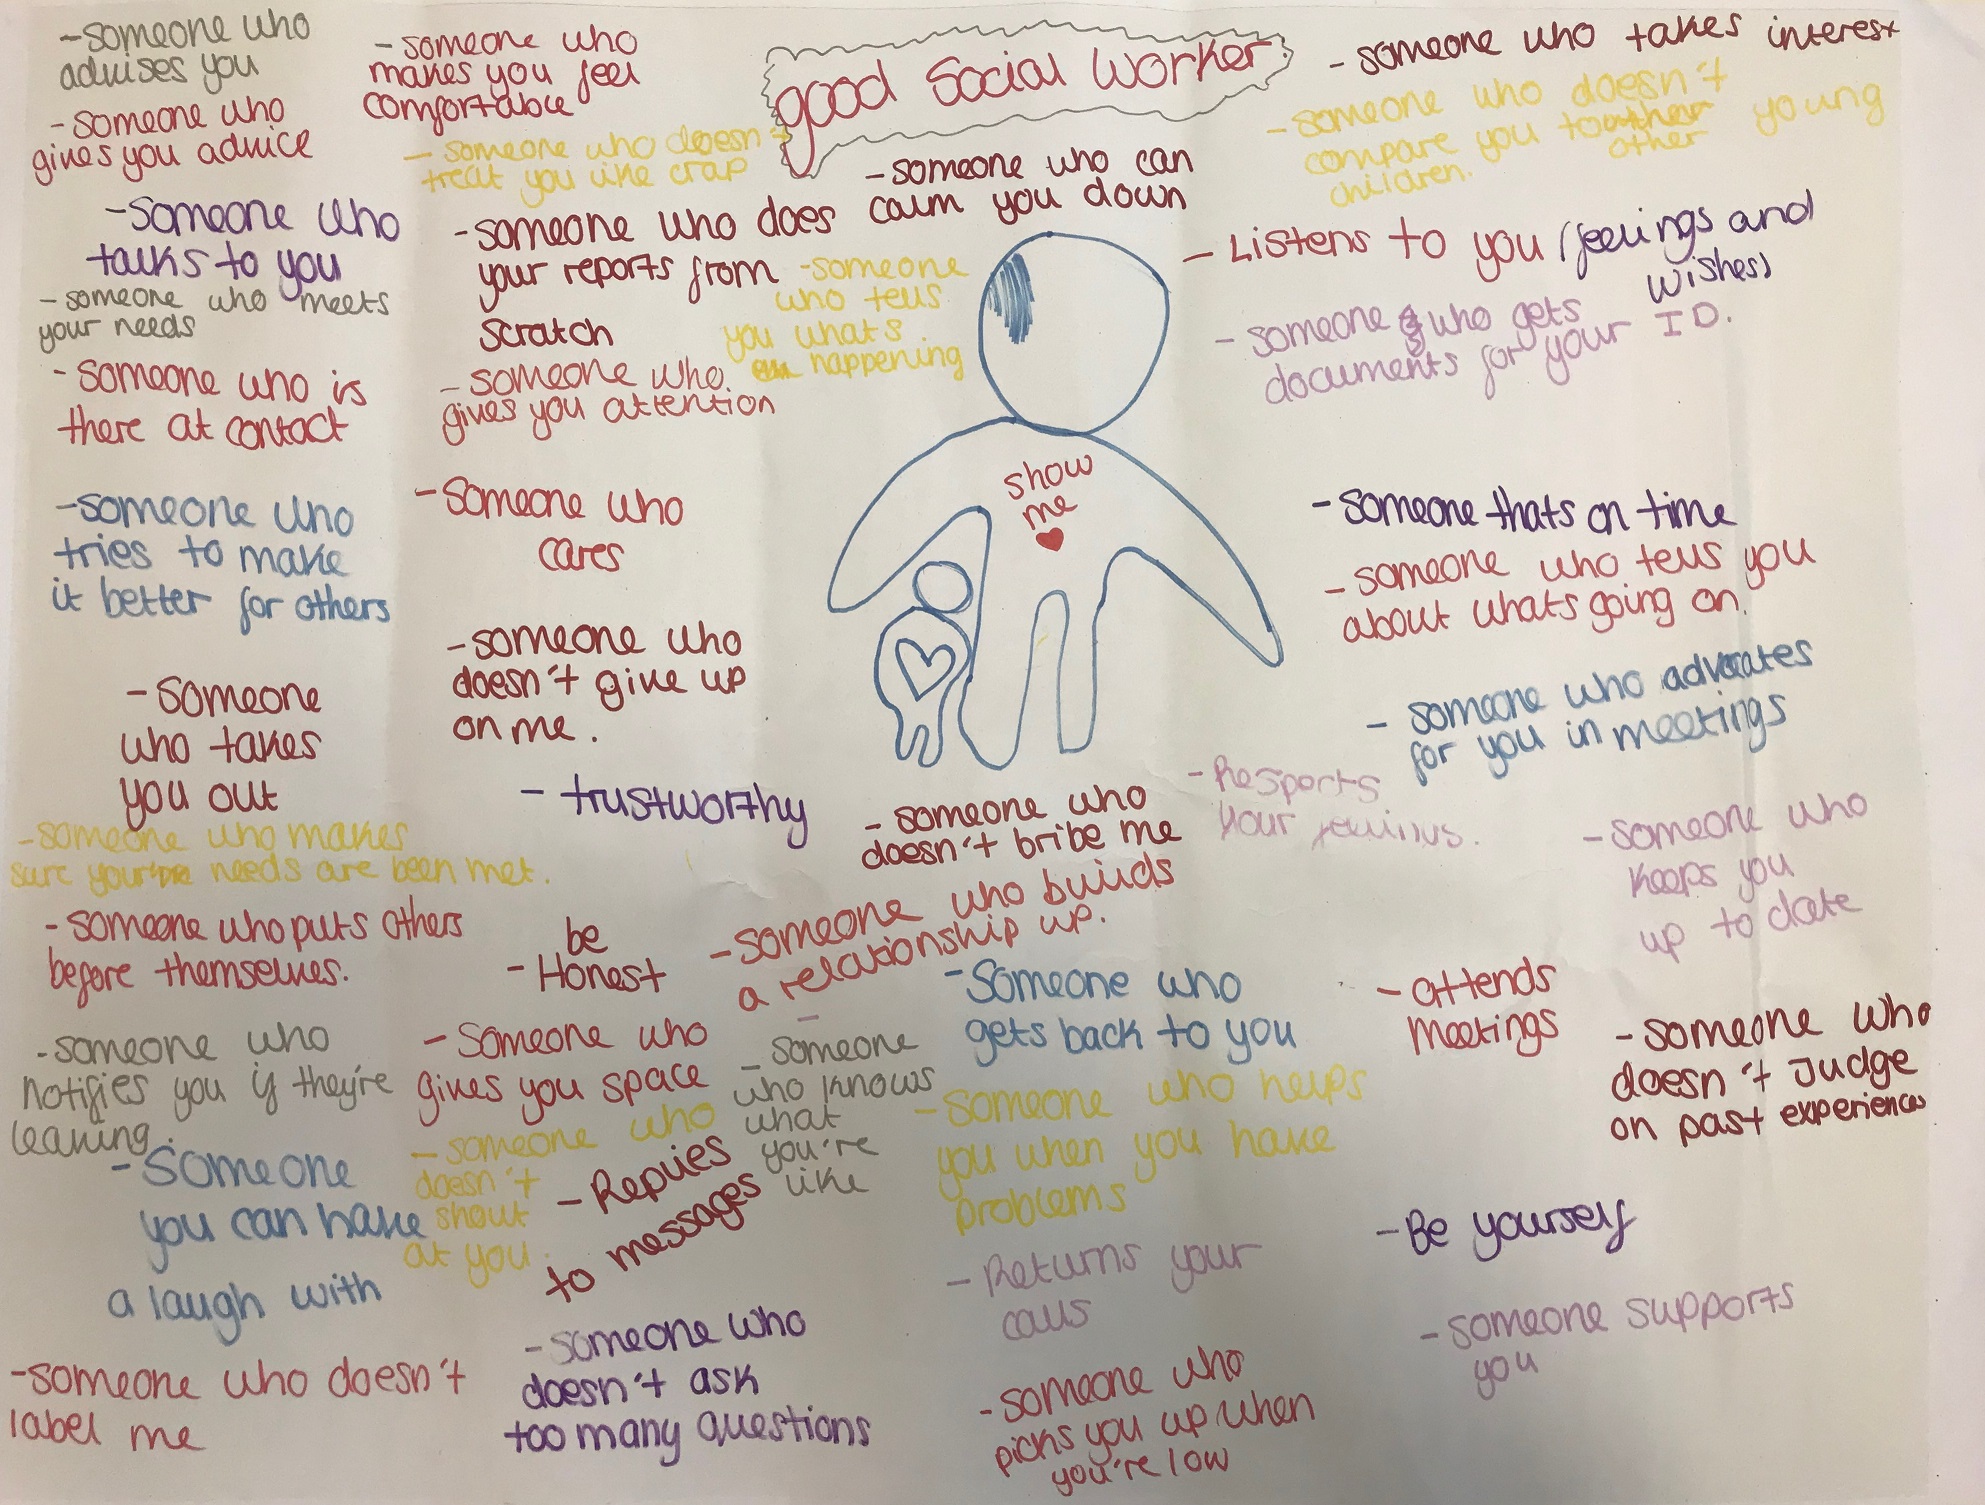 good Social Worker
-someone who
advises you
-someone who
gives you advice
-someone who
makes you feel
comfortable
- someone who doesn't
treat you like crap
-Someone who
talks to you
-someone who meets
your needs
-someone who is
there at contact
-someone who does
your reports from
scratch
-someone who can
calm you down
-someone
who tells
you whats
happening
-someone who
gives you attention
-someone who takes interest
-someone who doesn't
compare you to other young
children.
- Listens to you (feelings and
wishes)
-someone who gets
documents for your ID.
show
me
-someone who
tries to make
it better for others
-Someone who
cares
-someone who
doesn't give up
on me.
-Someone thats on time
-someone who tells you
about whats going on.
- someone who advocates
for you in meetings
-Someone
who takes
you out
- trustworthy
-someone who makes
sure your needs are been met.
-someone who
doesn't bribe me
-Respects
your feelings.
-someone who
keeps you
up to date
-someone who puts others
before themselves.
be
-Honest
-someone who builds
a relationship up.
-Someone who
gets back to you
-attends
meetings
-someone who
doesn't Judge
on past experiences
-someone who
notifies you if they're
leaving.
-Someone who
gives you space
-someone
who knows
what
you're
like
-Someone who
doesn't
shout
at you.
-Replies
to messages
-Someone who helps
you when you have
problems
-Someone
you can have
a laugh with
-Returns your
calls
-Be yourself
-someone supports
you
-someone who doesn't
label me
-someone who
doesn't ask
too many questions
-someone who
picks you up when
you're low